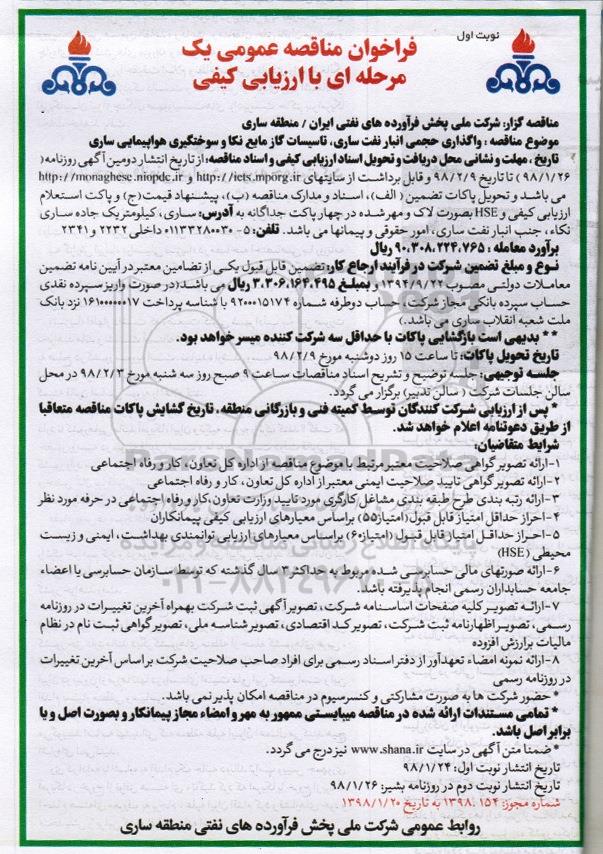 نوبت اول
فراخوان مناقصه عمومی یک
مرحله ای با ارزیابی کیفی
مناقصه گزار: شرکت ملی پخش فرآورده های نفتی ایران / منطقه ساری
موضوع مناقصه : واگذاری حجمی انبار نفت ساری، تاسیسات گاز مایع نکا و سوختگیری هواپیمایی ساری
تاریخ ، مهلت و نشانی محل دریافت و تحویل اسناد ارزیابی کیفی و اسناد مناقصه: از تاریخ انتشار دومین آگهی روزنامه(
۹۸/۱/۲۶ ) تا تاریخ ۹۸/۲/۹ و قابل برداشت از سایتهای http://iets.mporg.ir و http://monaghese.niopdc.ir
می باشد و تحویل پاکات تضمین ( الف)، اسناد و مدارک مناقصه (ب)، پیشنهاد قیمت(ج) و پاکت استعلام
ارزیابی کیفی و HSE بصورت لاک و مهر شده در چهار پاکت جداگانه به آدرس: ساری، کیلومتر یک جاده ساری
نکاء، جنب انبار نفت ساری، امور حقوقی و پیمانها می باشد. تلفن: ۵- ۰۱۱۳۳۲۸۰۰۳۰ داخلی ۲۲۳۲ و ۲۳۴۱
برآورد معامله : ۹۰.۳۰۸.۲۲۴.۷۶۵ ریال
نوع و مبلغ تضمین شرکت در فرآیند ارجاع کار: تضمین قابل قبول یکی از تضامین معتبر در آیین نامه تضمین
معاملات دولتی مصوب ۱۳۹۴/۹/۲۲ و بمبلغ ۳.۳۰۶.۱۶۴.۴۹۵ ریال می باشد(در صورت واریز سپرده نقدی
حساب سپرده بانکی مجاز شرکت، حساب دوطرفه شماره ۹۲۰۰۰۱۵۱۷۴ با شناسه پرداخت ۱۶۱۰۰۰۰۰۰۱۷ نزد بانک
ملت شعبه انقلاب ساری می باشد.)
* * بدیهی است بازگشایی پاکات با حداقل سه شرکت کننده میسر خواهد بود.
تاریخ تحویل پاکات: تا ساعت ۱۵ روز دوشنبه مورخ ۹۸/۲/۹
جلسه توجیهی: جلسه توضیح و تشریح اسناد مناقصات ساعت ۹ صبح روز سه شنبه مورخ ۹۸/۲/۳ در محل
سالن جلسات شرکت ( سالن تدبیر) برگزار می گردد.
* پس از ارزیابی شرکت کنندگان توسط کمیته فنی و بازرگانی منطقه، تاریخ گشایش پاکات مناقصه متعاقبا
از طریق دعوتنامه اعلام خواهد شد.
شرایط متقاضیان:
۱-ارائه تصویر گواهی صلاحیت معتبر مرتبط با موضوع مناقصه از اداره کل تعاون، کار و رفاه اجتماعی
۲-ارائه تصویر گواهی تایید صلاحیت ایمنی معتبر از اداره کل تعاون، کار و رفاه اجتماعی
۳-ارائه رتبه بندی طرح طبقه بندی مشاغل کارگری مورد تایید وزارت تعاون،کار و رفاه اجتماعی در حرفه مورد نظر
۴-احراز حداقل امتیاز قابل قبول(امتیاز۵۵) براساس معیارهای ارزیابی کیفی پیمانکاران
۵-احراز حداقل امتیاز قابل قبول (امتیاز۶۰) براساس معیارهای ارزیابی توانمندی بهداشت، ایمنی و زیست
محیطی (HSE)
۶-ارائه صورتهای مالی حسابرسی شده مربوط به حداکثر ۳ سال گذشته که توسط سازمان حسابرسی یا اعضاء
جامعه حسابداران رسمی انجام پذیرفته باشد.
۷-ارائه تصویر کلیه صفحات اساسنامه شرکت، تصویر آگهی ثبت شرکت بهمراه آخرین تغییرات در روزنامه
رسمی، تصویر اظهارنامه ثبت شرکت، تصویر کد اقتصادی، تصویر شناسه ملی، تصویر گواهی ثبت نام در نظام
مالیات بر ارزش افزوده
۸-ارائه نمونه امضاء تعهدآور از دفتر اسناد رسمی برای افراد صاحب صلاحیت شرکت براساس آخرین تغییرات
در روزنامه رسمی
* حضور شرکت ها به صورت مشارکتی و کنسرسیوم در مناقصه امکان پذیر نمی باشد.
* تمامی مستندات ارائه شده در مناقصه میبایستی ممهور به مهر و امضاء مجاز پیمانکار و بصورت اصل و یا
برابر اصل باشد.
* ضمنا متن آگهی در سایت www.shana.ir نیز درج می گردد.
تاریخ انتشار نوبت اول: ۹۸/۱/۲۴
تاریخ انتشار نوبت دوم در روزنامه بشیر: ۹۸/۱/۲۶
شماره مجوز: ۱۳۹۸.۱۵۴ به تاریخ ۱۳۹۸/۱/۲۰
روابط عمومی شرکت ملی پخش فرآورده های نفتی منطقه ساری
ParsNamadData
۰۲۱-۸۸۳۴۹۶۷۰